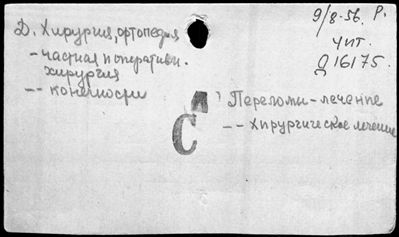 9/8-56. Р.
Чит.
Д 16175.
Д. Хирургия, ортопедия
- частная и оперативн.
хирургия
-- конечности
Переломы - лечение
-- Хирургическое лечение
С